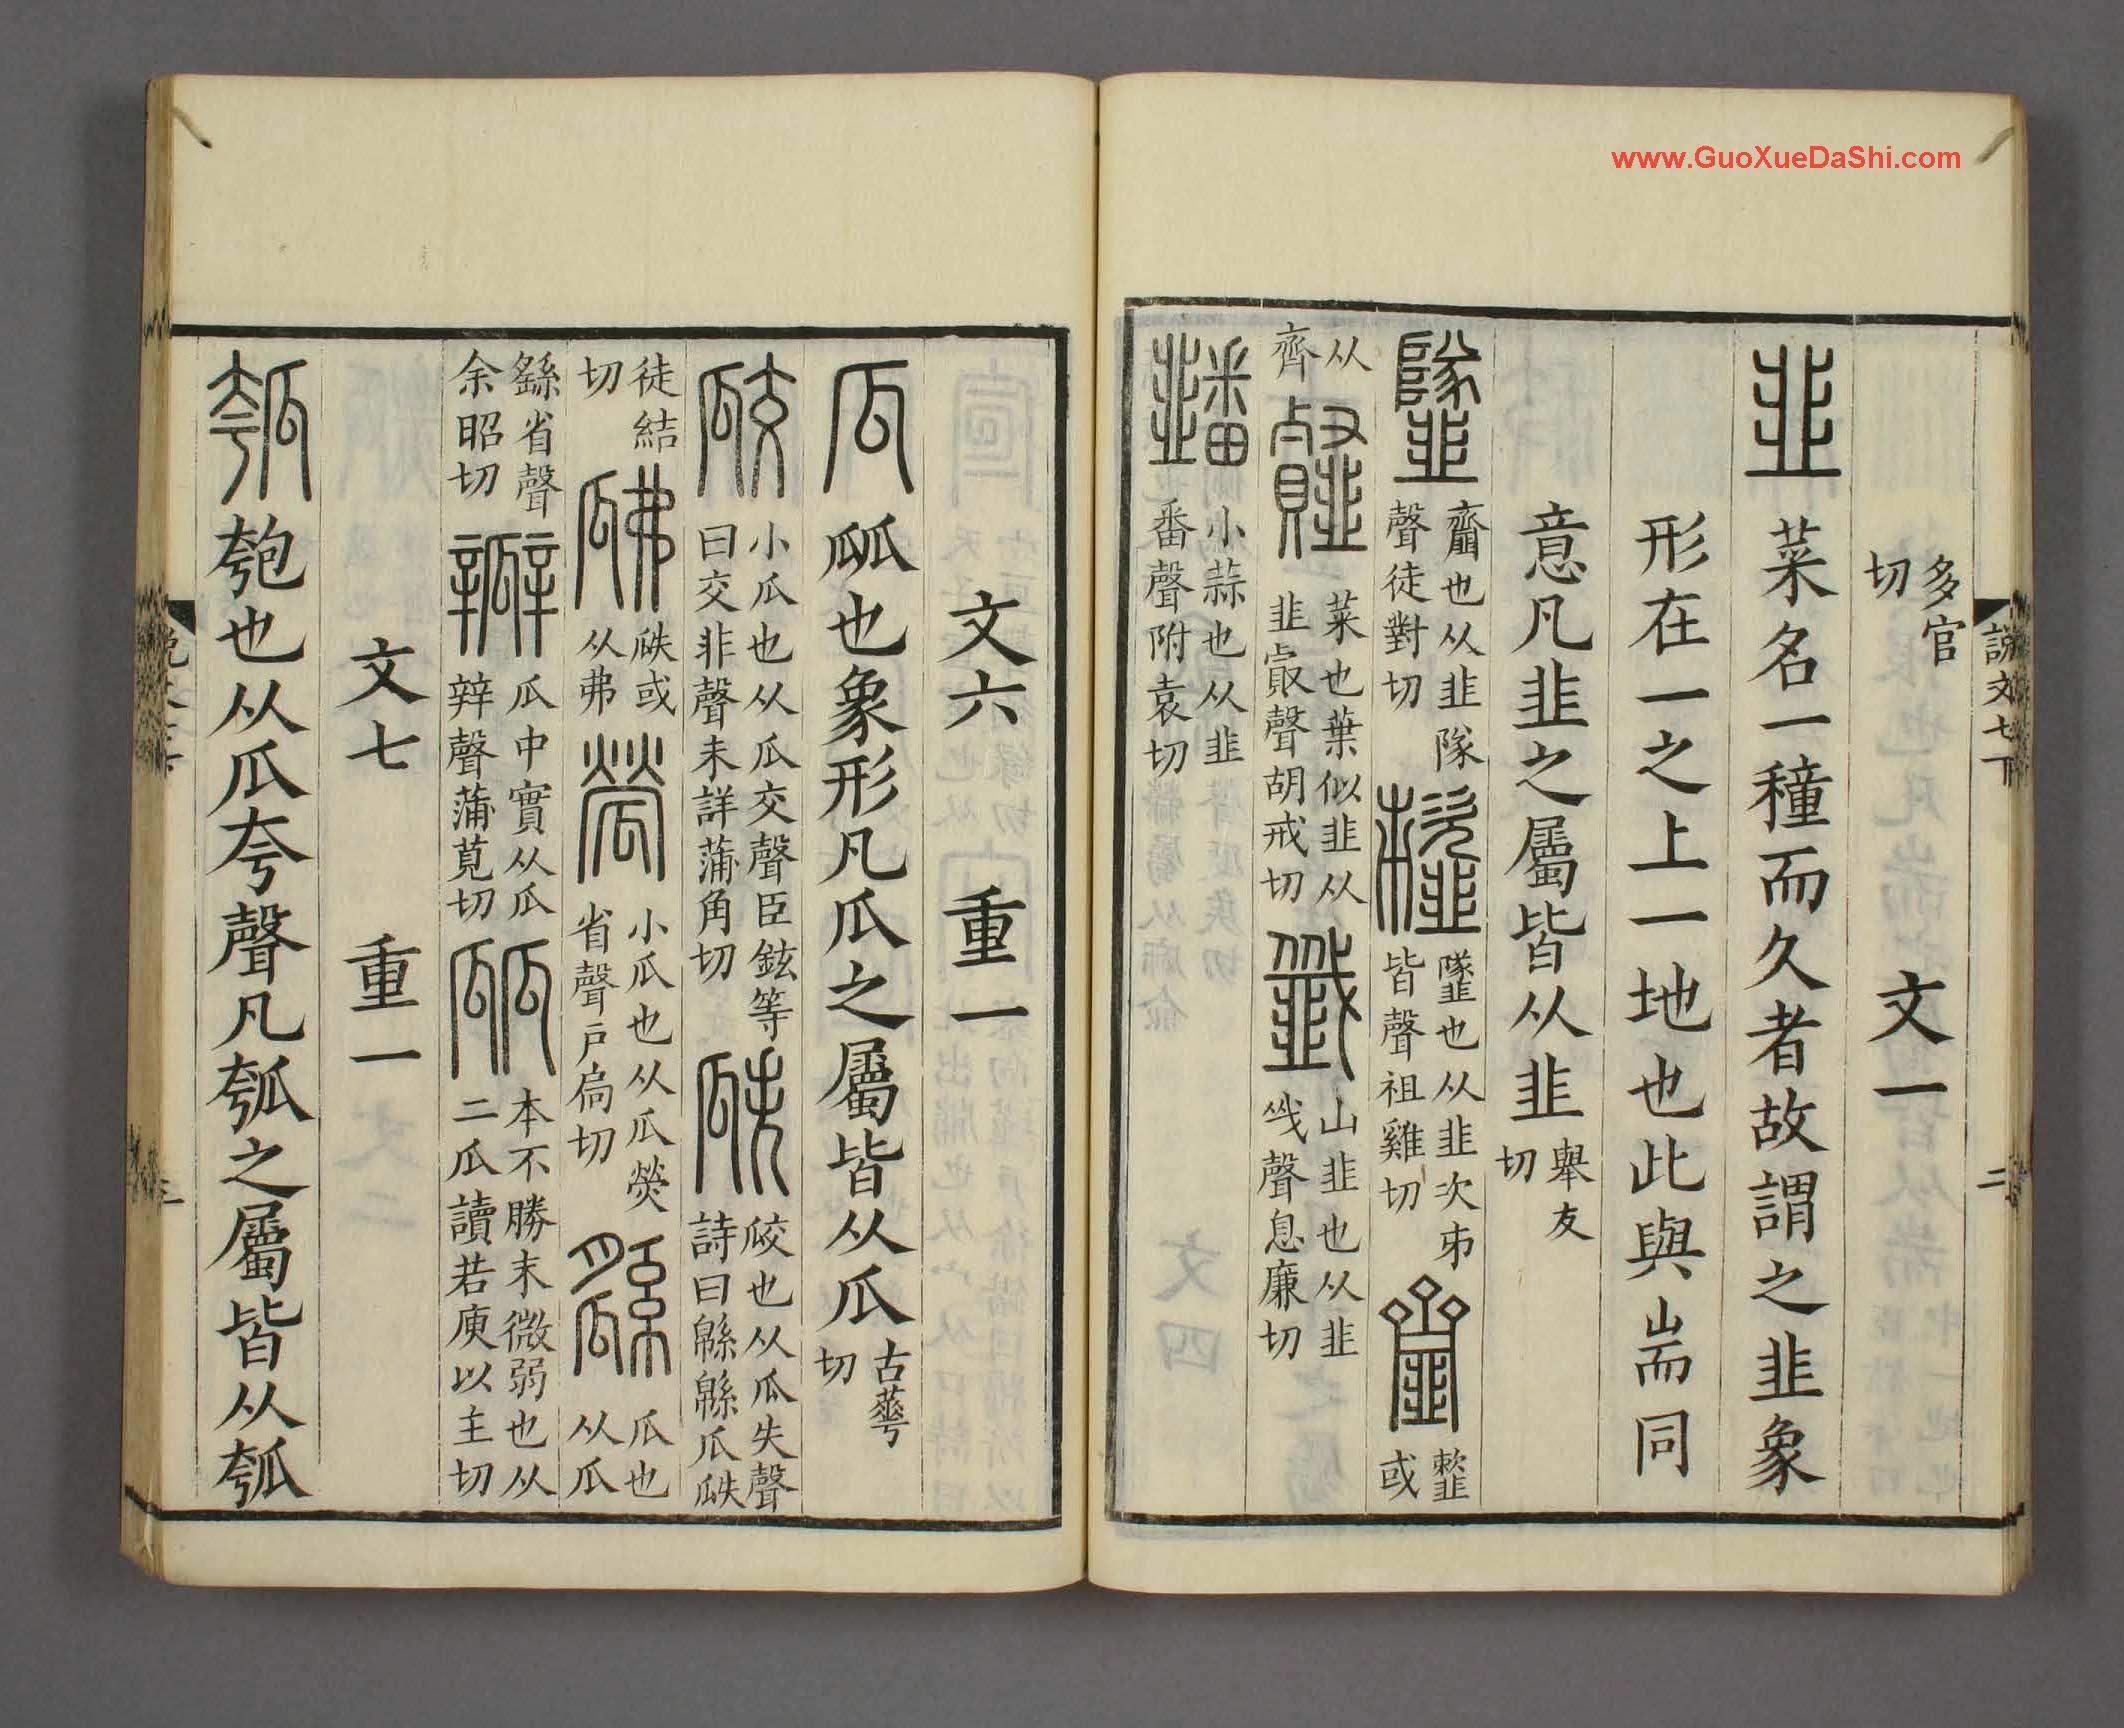 www.GuoXueDaShi.com
說文七下
二
多官
切
文一
韭菜名一穜而久者故謂之韭象
形在一之上一地也此與耑同
意凡韭之屬皆从韭舉友
切
䪤也从韭隊
聲徒對切
墜也从韭次𠂔
皆聲祖雞切
䪡或
从
齊
菜也葉似韭从
韭㕡聲胡戒切
山韭也从韭
㦰聲息廉切
小蒜也从韭
番聲附袁切
文六 重一
瓜㼌也象形凡瓜之屬皆从瓜古華
切
小瓜也从瓜交聲臣鉉等
曰交非聲未詳蒲角切
㼎也从瓜失聲
詩曰緜緜瓜瓞
徒結
切
瓞或
从弗
小瓜也从瓜熒
省聲戶扃切
瓜也
从瓜
繇省聲
余昭切
瓜中實从瓜
辡聲蒲莧切
本不勝末微弱也从
二瓜讀若庾以主切
文七 重一
瓠匏也从瓜夸聲凡瓠之屬皆从瓠